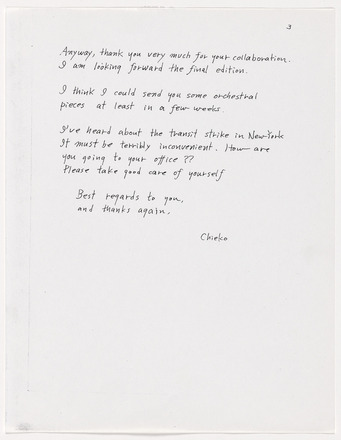 3
Anyway, thank you very much for your collaboration.
I am looking forward the final edition.
I think I could send you some orchestral
pieces at least in a few weeks.
I've heard about the transit strike in New York
It must be terribly inconvenient. How are
you going to your office ??
Please take good care of yourself
Best regards to you,
and thanks again.
Chieko